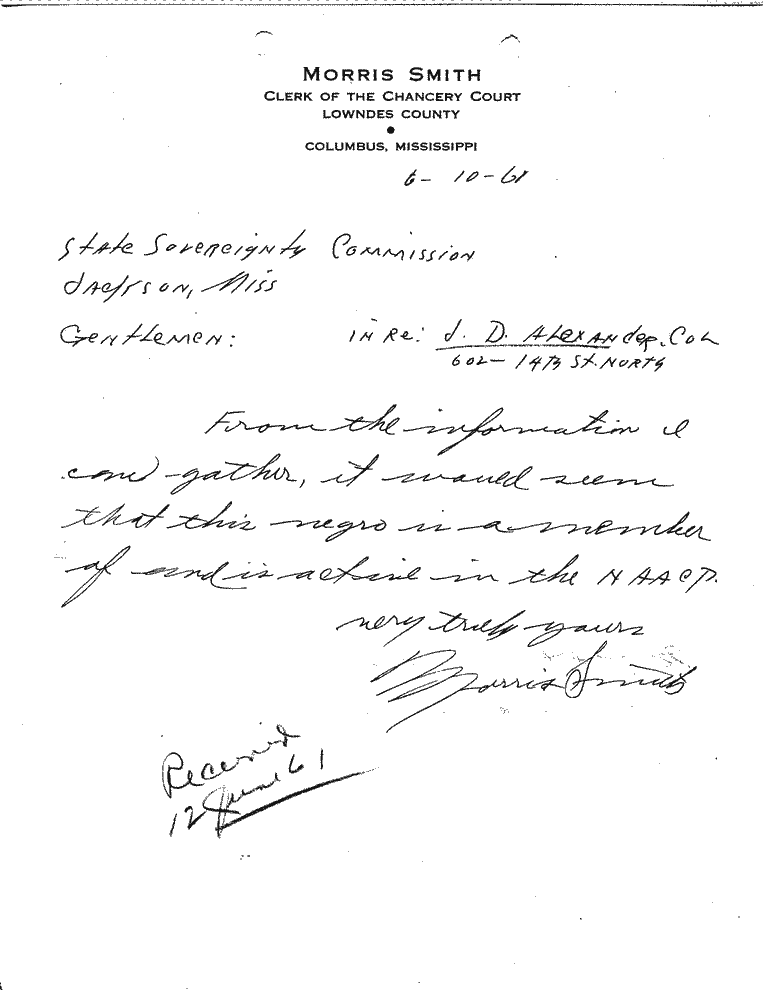 MORRIS SMITH
CLERK OF THE CHANCERY COURT
LOWNDES COUNTY
•
COLUMBUS, MISSISSIPPI
6-10-61
State Sovereignty Commission
Jackson, Miss
Gentlemen: IN Re: J. D. Alexander, Col
602-14th St. North
From the information I
can gather, it would seem
that this negro is a member
of and is active in the NAACP.
very truly yours
Morris Smith
Received
12 June 61